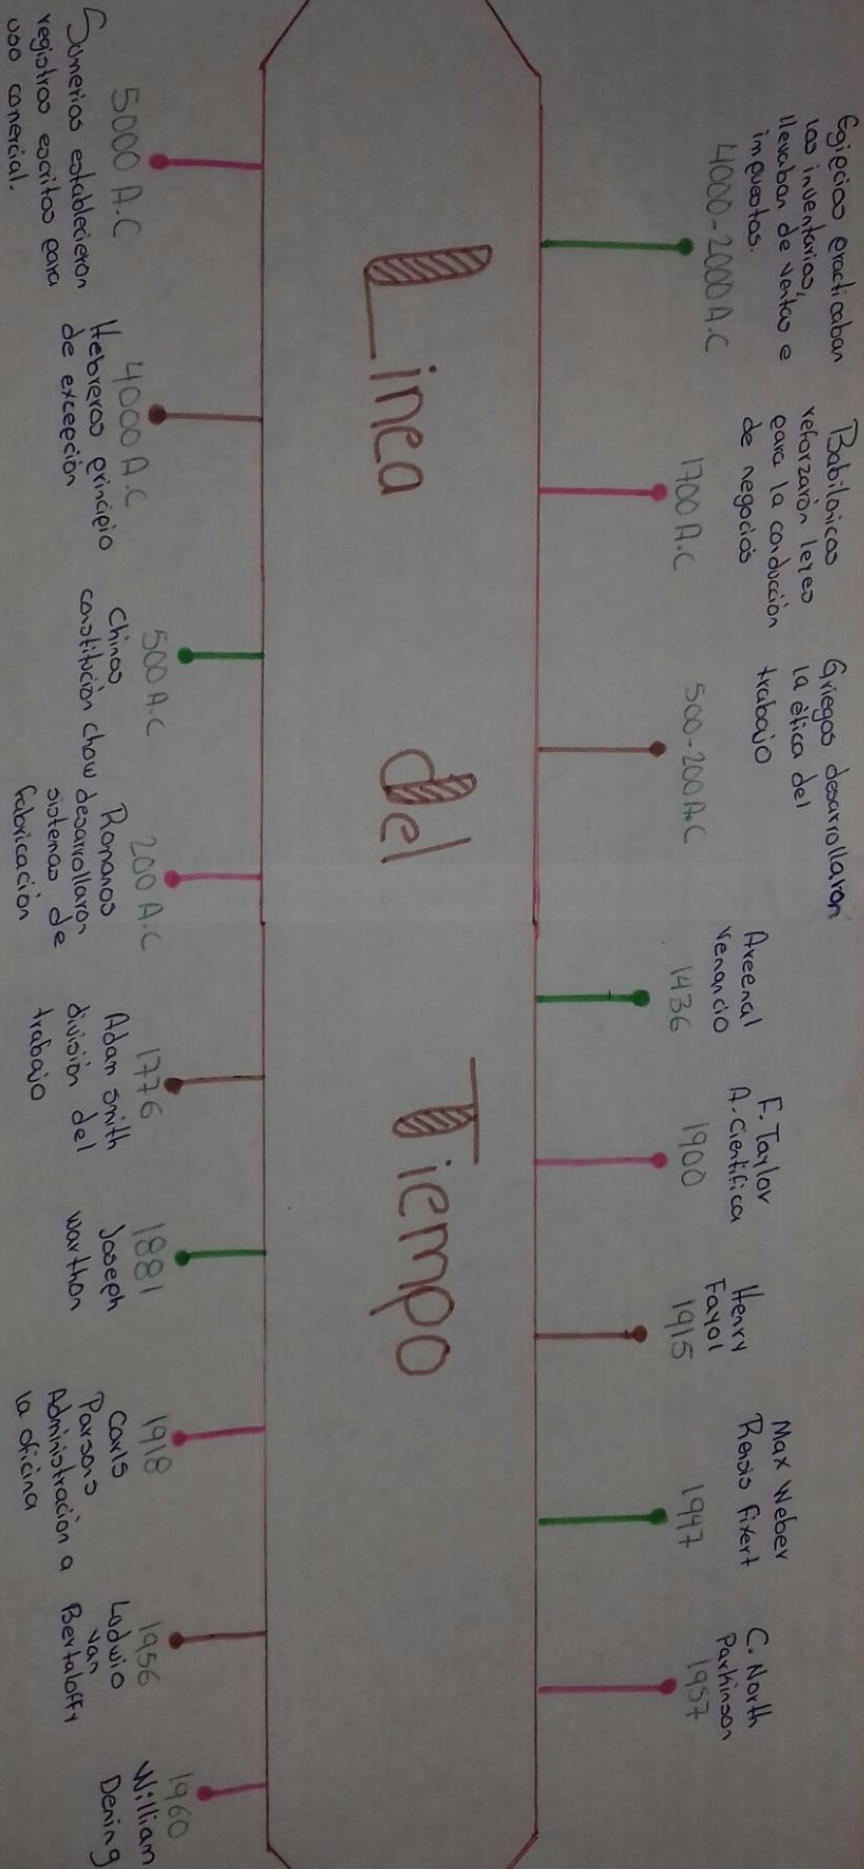 Egipcios practicaban
los inventarios,
llevaban de ventas e
impuestos.
4000-2000 A.C
Babilonicos
reforzarón leyes
para la conducción
de negocios
1700 A.C
Griegos desarrollaron
la ética del
trabajo
500-200 A.C
Areenal
Venancio
1436
F. Taylor
A. Cientifica
1900
Henry
Fayol
1915
Max Weber
Rensis Fixert
1947
C. North
Parkinson
1957
Linea del Tiempo
5000 A.C
Sumerios establecieron
registros escritos para
uso comercial.
4000 A.C
Hebreros principio
de excepción
500 A.C
Chinos
constitución chow
200 A.C
Romanos
desarrollaron
sistemas de
fabricación
1776
Adam Smith
división del
trabajo
1881
Joseph
Warthon
1918
Carls
Parsons
Administracion a
la oficina
1956
Ludwio
van
Bertaloffy
1960
William
Dening